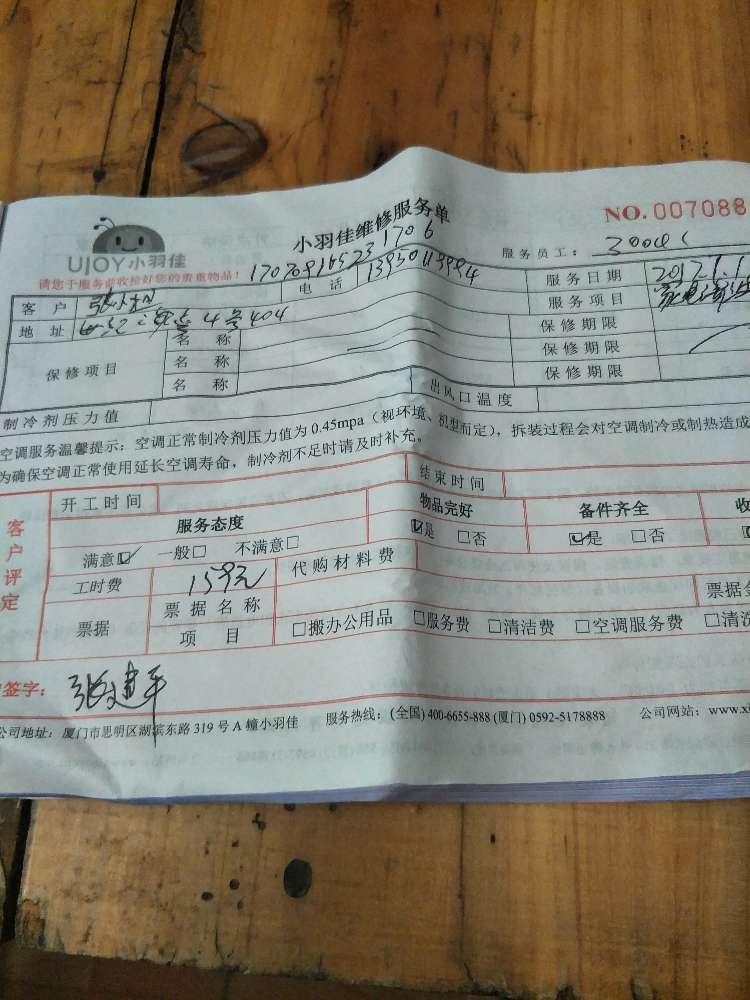 UJOY小羽佳
小羽佳维修服务单
NO. 007088
请您于服务前收捡好您的贵重物品!
服务员工:
客户
电话
服务日期 2017.1.1
地址 4号404
服务项目
保修项目
名称
保修期限
名称
保修期限
名称
保修期限
制冷剂压力值
出风口温度
空调服务温馨提示:空调正常制冷剂压力值为0.45mpa(视环境、机型而定),拆装过程会对空调制冷或制热造成
为确保空调正常使用延长空调寿命,制冷剂不足时请及时补充。
客户评定
开工时间
结束时间
服务态度
物品完好
备件齐全
收
满意☑ 一般□ 不满意□
☑是 □否
☑是 □否
工时费 159元
代购材料费
票据
票据名称
票据金
项目
□搬办公用品 □服务费 □清洁费 □空调服务费 □清洗
签字: 张建平
公司地址:厦门市思明区湖滨东路319号A幢小羽佳 服务热线:(全国)400-6655-888 (厦门)0592-5178888 公司网站:www.x